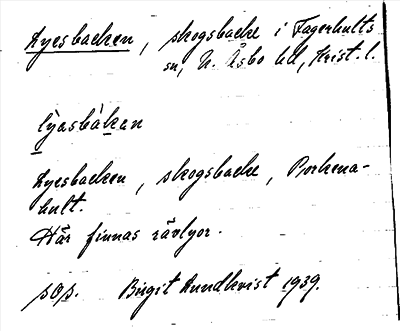 Lyesbacken, skogsbacke i Fagerhults
sn, N. Åsbo hd, Krist. l.
lỳasbàkan
Lyesbacken, skogsbacke, Porkena-
hult.
Här finnas rävlyor.
sos. Birgit Rundkvist 1939.